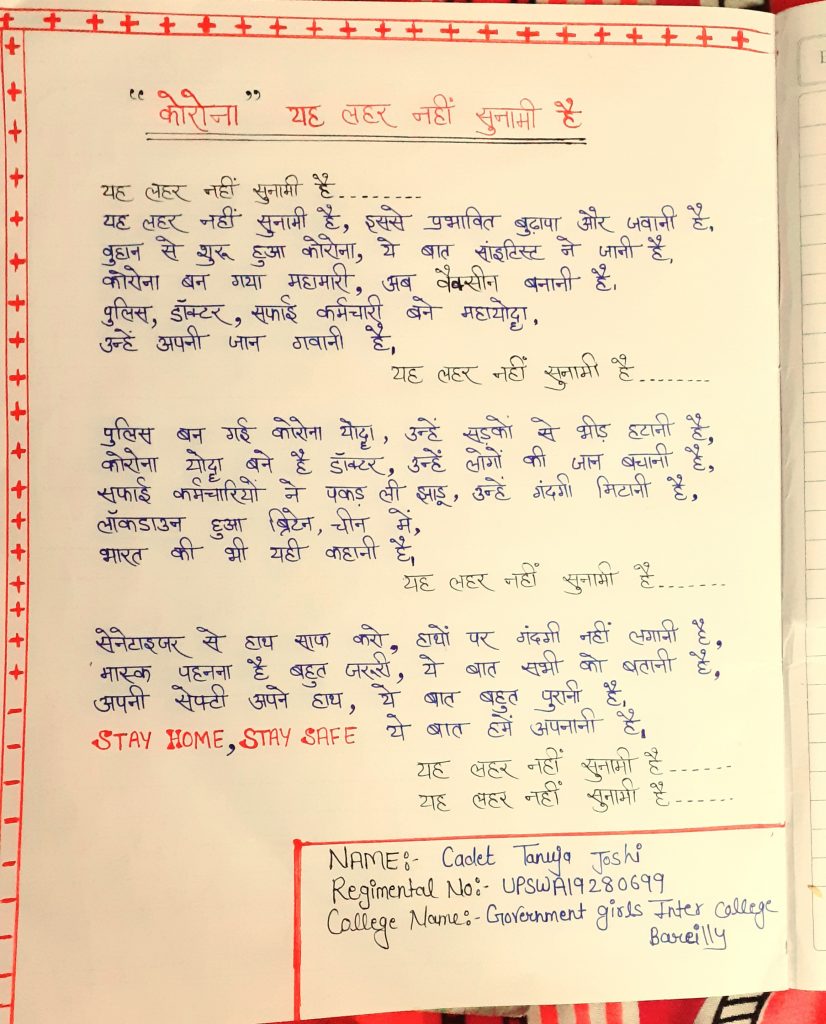 "कोरोना" यह लहर नहीं सुनामी है
यह लहर नहीं सुनामी है.........
यह लहर नहीं सुनामी है, इससे प्रभावित बुढ़ापा और जवानी है,
वुहान से शुरू हुआ कोरोना, ये बात सांइटिस्ट ने जानी है,
कोरोना बन गया महामारी, अब वैक्सीन बनानी है,
पुलिस, डॉक्टर, सफाई कर्मचारी बने महायोद्धा,
उन्हें अपनी जान गवानी है,
यह लहर नहीं सुनामी है........
पुलिस बन गई कोरोना योद्धा, उन्हें सड़कों से भीड़ हटानी है,
कोरोना योद्धा बने है डॉक्टर, उन्हें लोगों की जान बचानी है,
सफाई कर्मचारियों ने पकड़ ली झाडू, उन्हें गंदगी मिटानी है,
लॉकडाउन हुआ ब्रिटेन, चीन में,
भारत की भी यही कहानी है,
यह लहर नहीं सुनामी है.......
सेनेटाइजर से हाथ साफ करो, हाथों पर गंदगी नहीं लगानी है,
मास्क पहनना है बहुत जरूरी, ये बात सभी को बतानी है,
अपनी सेफ्टी अपने हाथ, ये बात बहुत पुरानी है,
STAY HOME, STAY SAFE ये बात हमें अपनानी है,
यह लहर नहीं सुनामी है......
यह लहर नहीं सुनामी है......
NAME:- Cadet Tanuja Joshi
Regimental No:- UPSWA19280699
College Name:- Government girls Inter College
Bareilly